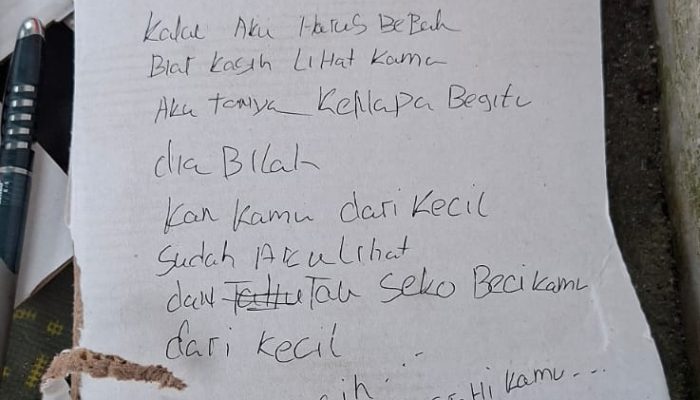 Kalau Aku Harus BeBah
Biar kasih Lihat Kamu
Aku tanya KeNapa Begitu
dia Bilah
Kan Kamu dari Kecil
Sudah AKu Lihat
dan Tau Seko Beci Kamu
dari Kecil
Hi Kamu...